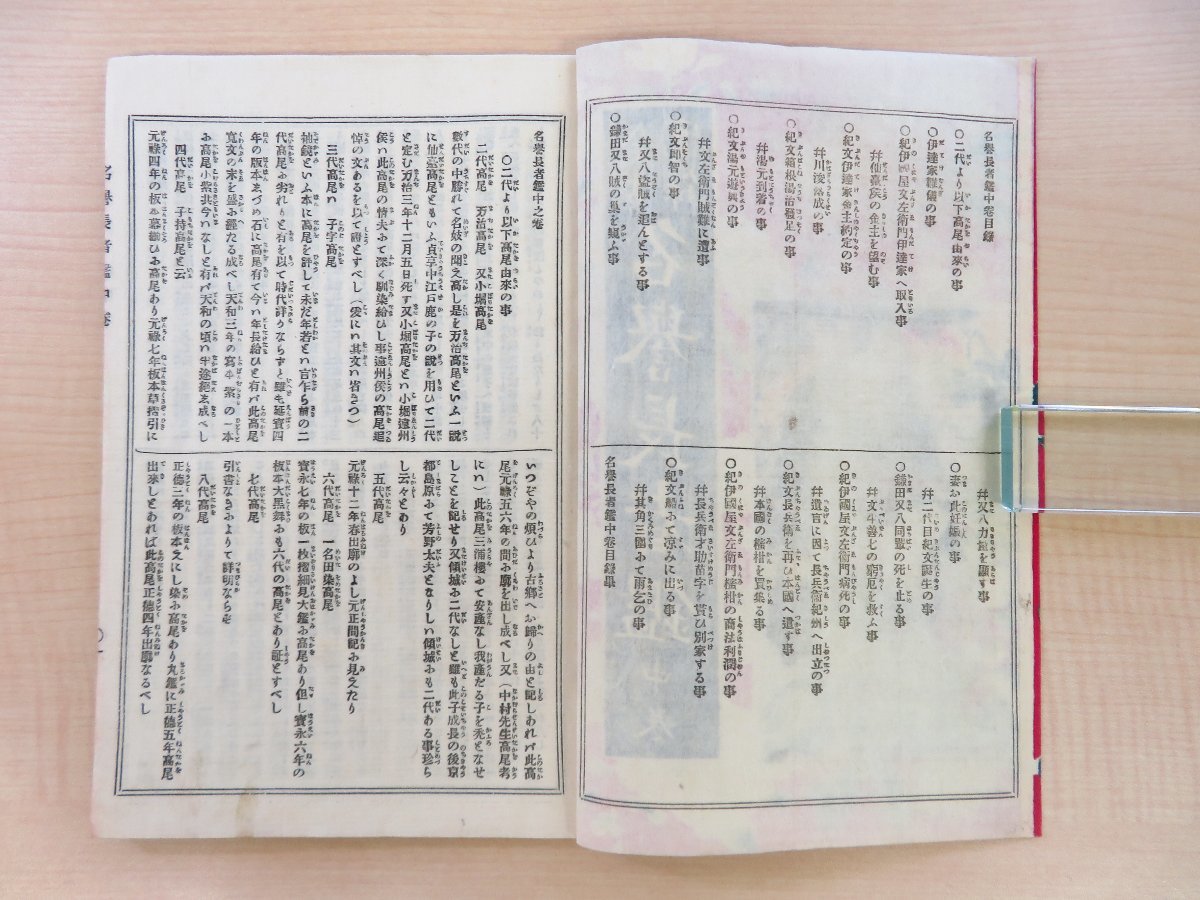 名譽長者鑑中卷目錄
〇二代より以下高尾由來の事
〇伊達家難儀の事
〇紀伊國屋文左衛門伊達家へ取入事
幷仙臺矦の金主を望む事
〇紀文伊達家金主約定の事
幷川浚落成の事
〇紀文箱根湯治發足の事
幷湯元到着の事
〇紀文湯元遊興の事
幷文左衛門賊難に遺事
〇紀文即智の事
幷又八盜賊を追んとする事
〇鎌田又八賊の巢を
幷又八力量を顯す事
〇妻お此妊娠の事
幷二代目紀文誕生の事
〇鎌田又八同輩の死を止る事
幷文斗善七の窮厄を救ふ事
〇紀伊國屋文左衛門病死の事
幷遺言に因て長兵衛紀州へ出立の事
〇紀文長兵衛を再び本國へ遺す事
幷本國の密柑を買集る事
〇紀伊國屋文左衛門密柑の商法利潤の事
幷長兵衛才助苗字を貰ひ別家する事
〇紀文船ふて凉みに出る事
幷其角三圍ふて雨乞の事
名譽長者鑑中卷目錄畢
名譽長者鑑中之卷
〇二代より以下高尾由來の事
二代高尾 万治高尾 又小堀高尾
數代の中勝れて名妓の聞え高し是を万治高尾といふ一説
に仙臺高尾ともいふ貞享中江戸鹿の子の説を用ひて二代
と定む万治三年十二月五日死す又小堀高尾とハ小堀遠州
矦ハ此高尾の情夫ふて深く馴染給ひし事遠州矦の高尾追
悼の文あるを以て證とすべし(爰にハ其文ハ省きつ)
三代高尾 子字高尾
袖鏡といふ本に高尾を評して未だ年若とハ言乍ら前の二
代高尾ふ劣れりと有を以て時代詳りならずと雖も延寳四
年の版本ゑづめ石に高尾有て今ハ年長給ひと有バ此高尾
寬文の末を盛ふ經たる成べし天和三年の寫本紫の一本
ふ高尾小紫共今ハなしと有バ天和の頃ハ中途絕ゑ成べし
四代高尾 子持高尾と云
元祿四年の板本幕揃ひふ高尾あり元祿七年板本草摺引に
いつぞやの頃ひより古鄕へお歸りの由と記しあれバ此高
尾元祿五六年の間ふ廓を出し成べし又(中村先生高尾考
にハ)此高尾三浦樓ふて安產なし我產たる子を禿となせ
しことを記せり又傾城ふ二代なしと雖も此子成長の後京
都島原ふて芳野太夫となりしハ傾城ふも二代ある事珍ら
し云々とあり
五代高尾
元祿十二年春出廓のよし元正間記ふ見えたり
六代高尾 一名田染高尾
寳永七年の板一枚摺細見大鑑ふ高尾あり但し寳永六年の
板本大黑舞ふも六代の高尾とあり証とすべし
七代高尾
引書なきふよりて詳明ならず
八代高尾
正德三年の板本えにし染ふ高尾あり丸鑑に正德五年高尾
出來しとあれば此高尾正德四年出廓なるべし
名譽長者鑑中卷
〇一